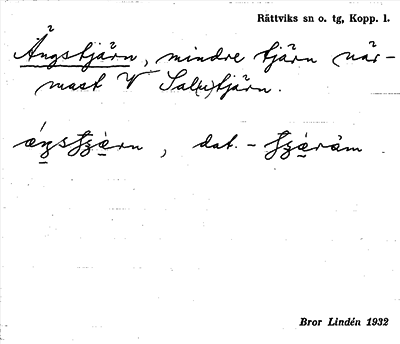 Rättviks sn o. tg, Kopp. l.
Ängstjärn, mindre tjärn när-
mast V Sal(u)tjärn.
, dat. -
Bror Lindén 1932